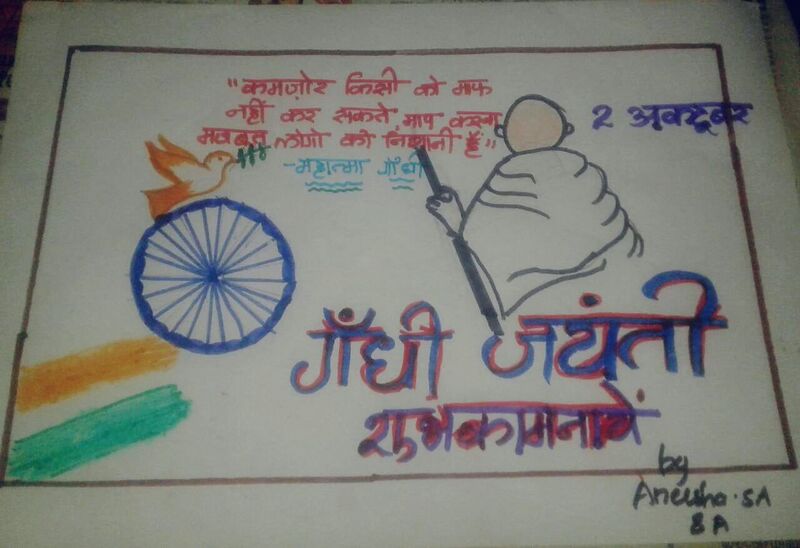 "कमज़ोर किसी को माफ
नहीं कर सकते, माफ करना
मजबूत लोगो की निशानी हैं"
-महात्मा गाँधी
2 अक्टूबर
गाँधी जयंती
शुभकामनायें
by
Aneesha.SA
8 A